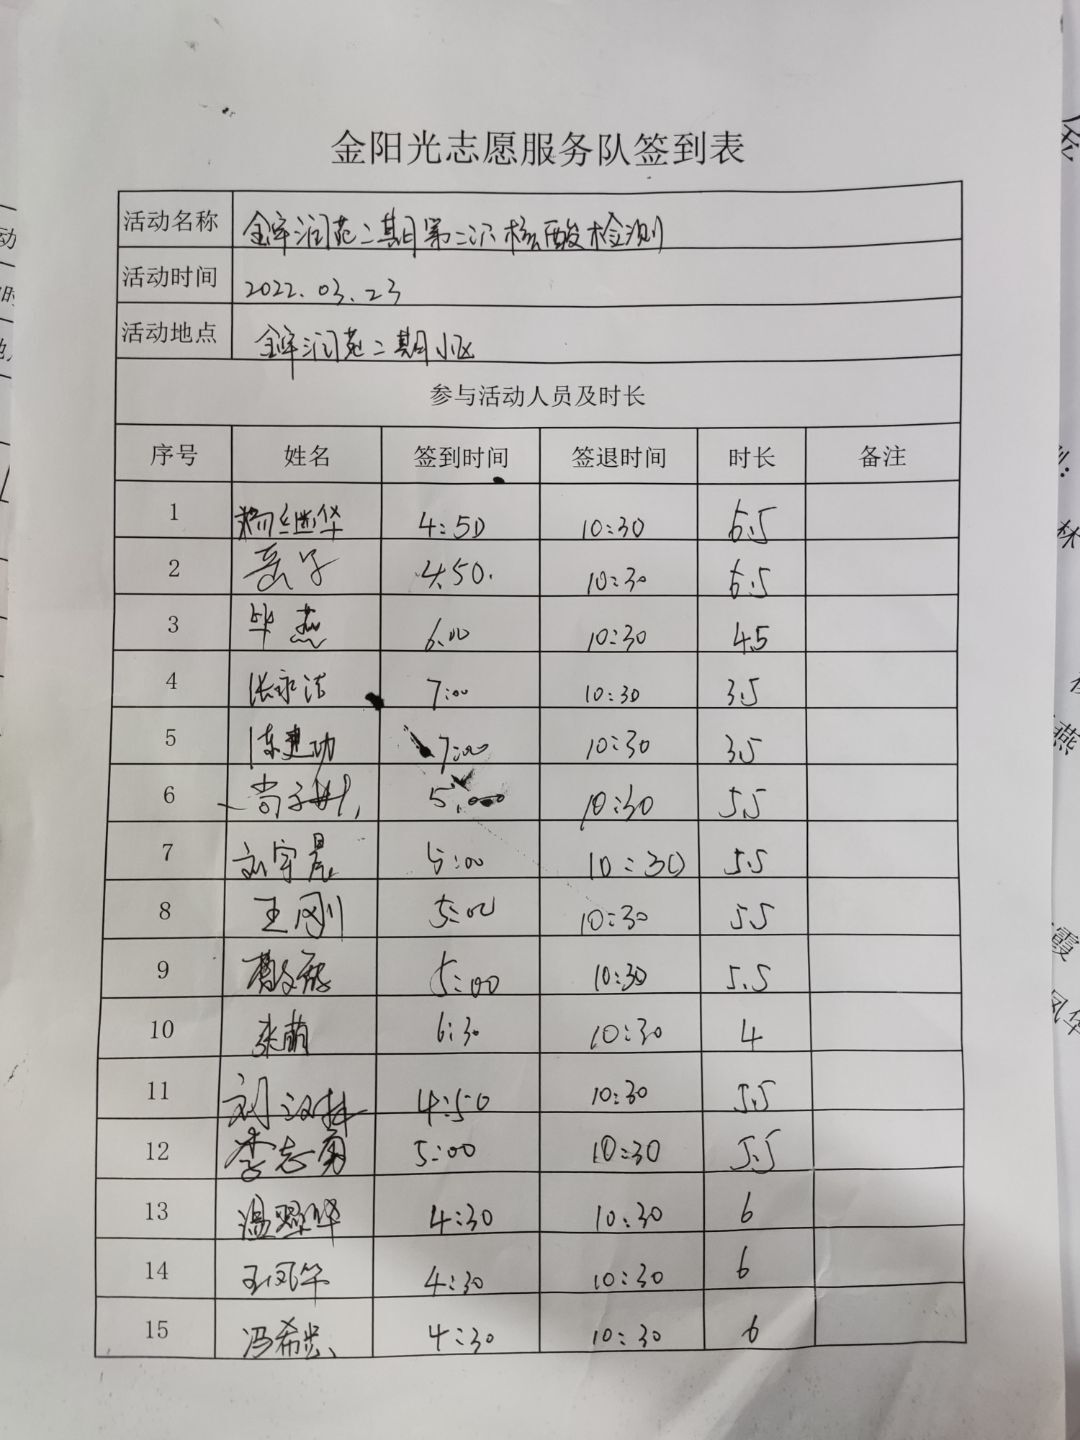 金阳光志愿服务队签到表
活动名称 金军润苑二期第二次核酸检测
活动时间 2022.03.23
活动地点 金军润苑二期小区
参与活动人员及时长
序号 姓名 签到时间 签退时间 时长 备注
1 杨继华 4:50 10:30 6.5
2 4:50. 10:30 6.5
3 毕燕 6:00 10:30 4.5
4 张永洁 7:00 10:30 3.5
5 陈建功 7:00 10:30 3.5
6 尚子 5:00 10:30 5.5
7 刘宇晨 5:00 10:30 5.5
8 王刚 5:00 10:30 5.5
9 5:00 10:30 5.5
10 张萌 6:30 10:30 4
11 刘汉林 4:50 10:30 5.5
12 李志勇 5:00 10:30 5.5
13 温翠华 4:30 10:30 6
14 王凤华 4:30 10:30 6
15 冯希 4:30 10:30 6